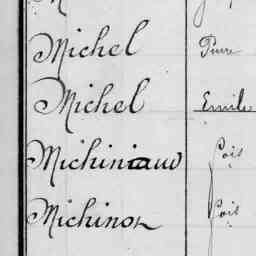 Michel Pierre
Michel Emile
Michiniaud fois
Michinot fois